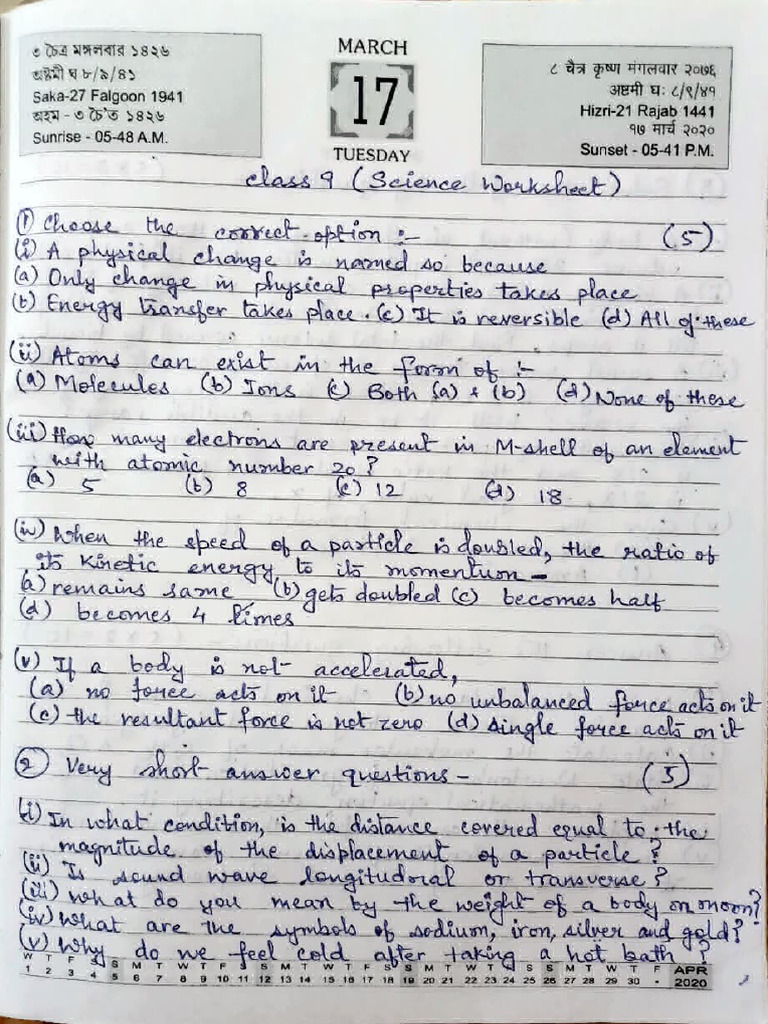 ৩ চৈত্র মঙ্গলবার ১৪২৬
অষ্টমী ঘ ৮/৯/৪১
Saka-27 Falgoon 1941
অহম - ৩ চ'ত ১৪২৬
Sunrise - 05-48 A.M.
MARCH
17
TUESDAY
८ चैत्र कृष्ण मंगलवार २०७६
अष्टमी घः ८/९/४१
Hizri-21 Rajab 1441
१७ मार्च २०२०
Sunset - 05-41 P.M.
Class 9 (Science Worksheet)
① Choose the correct option :- (5)
(i) A physical change is named so because
(a) Only change in physical properties takes place
(b) Energy transfer takes place. (c) It is reversible (d) All of these
(ii) Atoms can exist in the form of :-
(a) Molecules (b) Ions (c) Both (a) + (b) (d) None of these
(iii) How many electrons are present in M-shell of an element
with atomic number 20?
(a) 5 (b) 8 (c) 12 (d) 18
(iv) When the speed of a particle is doubled, the ratio of
its Kinetic energy to its momentum -
(a) remains same (b) gets doubled (c) becomes half
(d) becomes 4 times
(v) If a body is not accelerated,
(a) no force acts on it (b) no unbalanced force acts on it
(c) the resultant force is not zero (d) single force acts on it
② Very short answer questions - (5)
(i) In what condition, is the distance covered equal to the
magnitude of the displacement of a particle?
(ii) Is sound wave longitudoral or transverse?
(iii) What do you mean by the weight of a body on moon?
(iv) What are the symbols of sodium, iron, silver and gold?
(v) Why do we feel cold after taking a hot bath?
W T F S S M T W T F S S M T W T F S S M T W T F S S M T W T F APR
1 2 3 4 5 6 7 8 9 10 11 12 13 14 15 16 17 18 19 20 21 22 23 24 25 26 27 28 29 30 • 2020